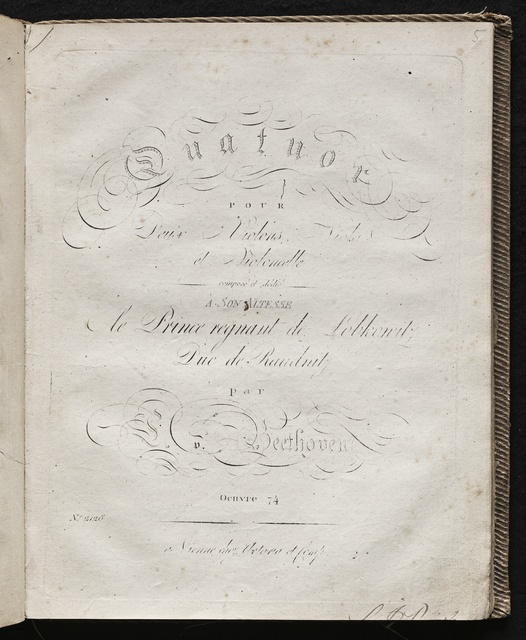 5
Quatuor
POUR
Deux Violons, Viola
et Violoncelle
composé et dédié
A SON ALTESSE
le Prince regnant de Lobkowitz
Duc de Raudnitz
par
L. v. Beethoven
Oeuvre 74
à Vienne chez Artaria et Comp.